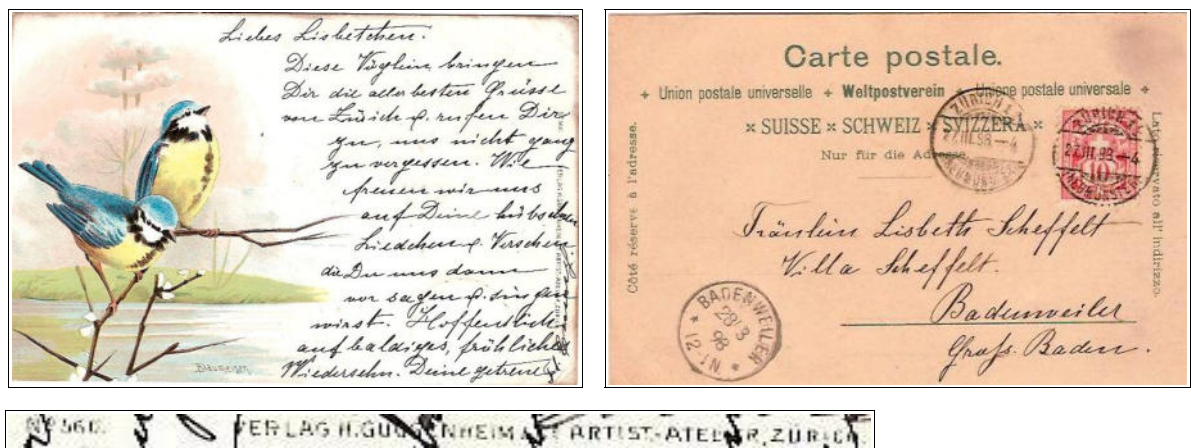 Liebes Lisbetchen.
Diese Vöglein bringen
Dir die allerbesten Grüsse
von Zürich & rufen Dir
zu, uns nicht ganz
zu vergessen. Wie
freuen wir uns
auf Deine hübschen
Liedchen & Verschen
die Du uns dann
vor sagen & singen
wirst. Hoffentlich
auf baldiges, fröhliches
Wiedersehn. Deine getreue
Blaumeisen
Carte postale.
Union postale universelle + Weltpostverein + Unione postale universale
SUISSE × SCHWEIZ × SVIZZERA
Nur für die Adresse.
Côté réservé à l'adresse.
Lato riservato all' indirizzo.
ZÜRICH
27.III.98.–4
NEUMÜNSTER
ZÜRICH
27.III.98.–4
NEUMÜNSTER
10
Fräulein Lisbeth Scheffelt
Villa Scheffelt.
Badenweiler
Grofs. Baden.
BADENWEILER
28/3
98
12-1N
No 560.
VERLAG H. GUGGENHEIM ARTIST.-ATELIER, ZÜRICH